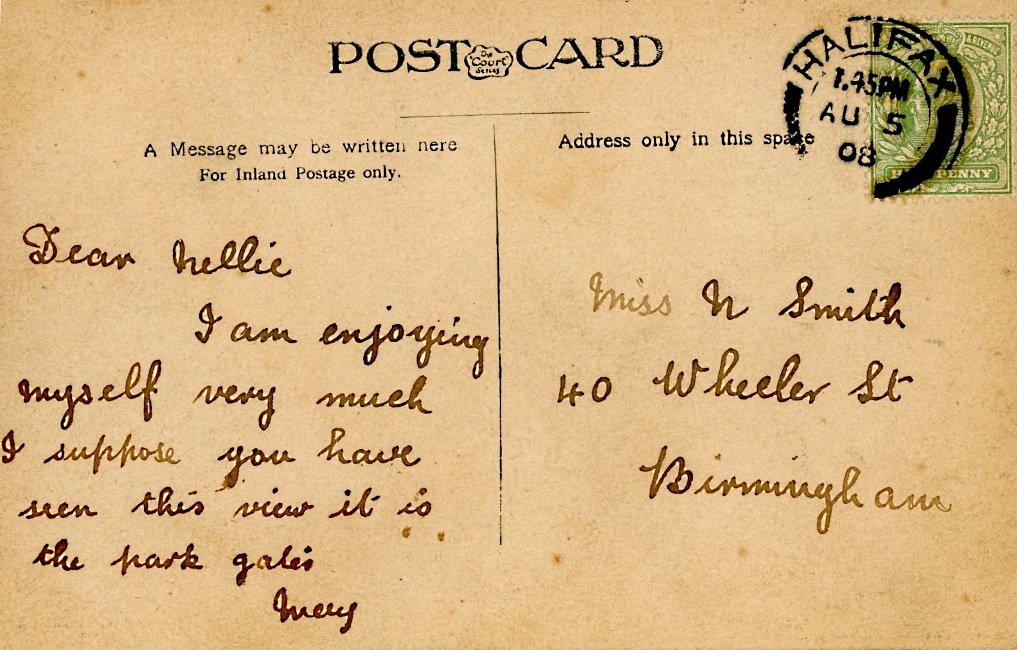 POST The Court Series CARD
HALIFAX
1.45PM
AU 5
08
& REVENUE
PENNY
A Message may be written here
For Inland Postage only.
Address only in this space
Dear Nellie
I am enjoying
myself very much
I suppose you have
seen this view it is
the park gates
Miss N Smith
40 Wheeler St
Birmingham